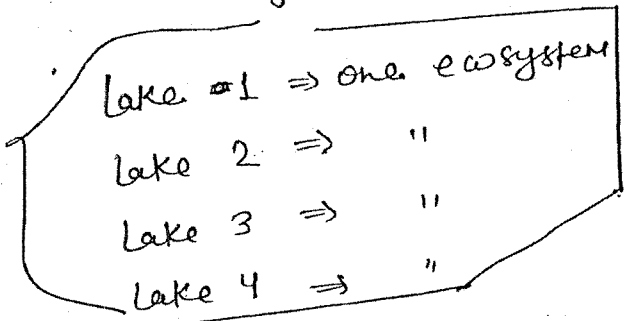 Lake 1 ⇒ one ecosystem
Lake 2 ⇒ "
Lake 3 ⇒ "
Lake 4 ⇒ "